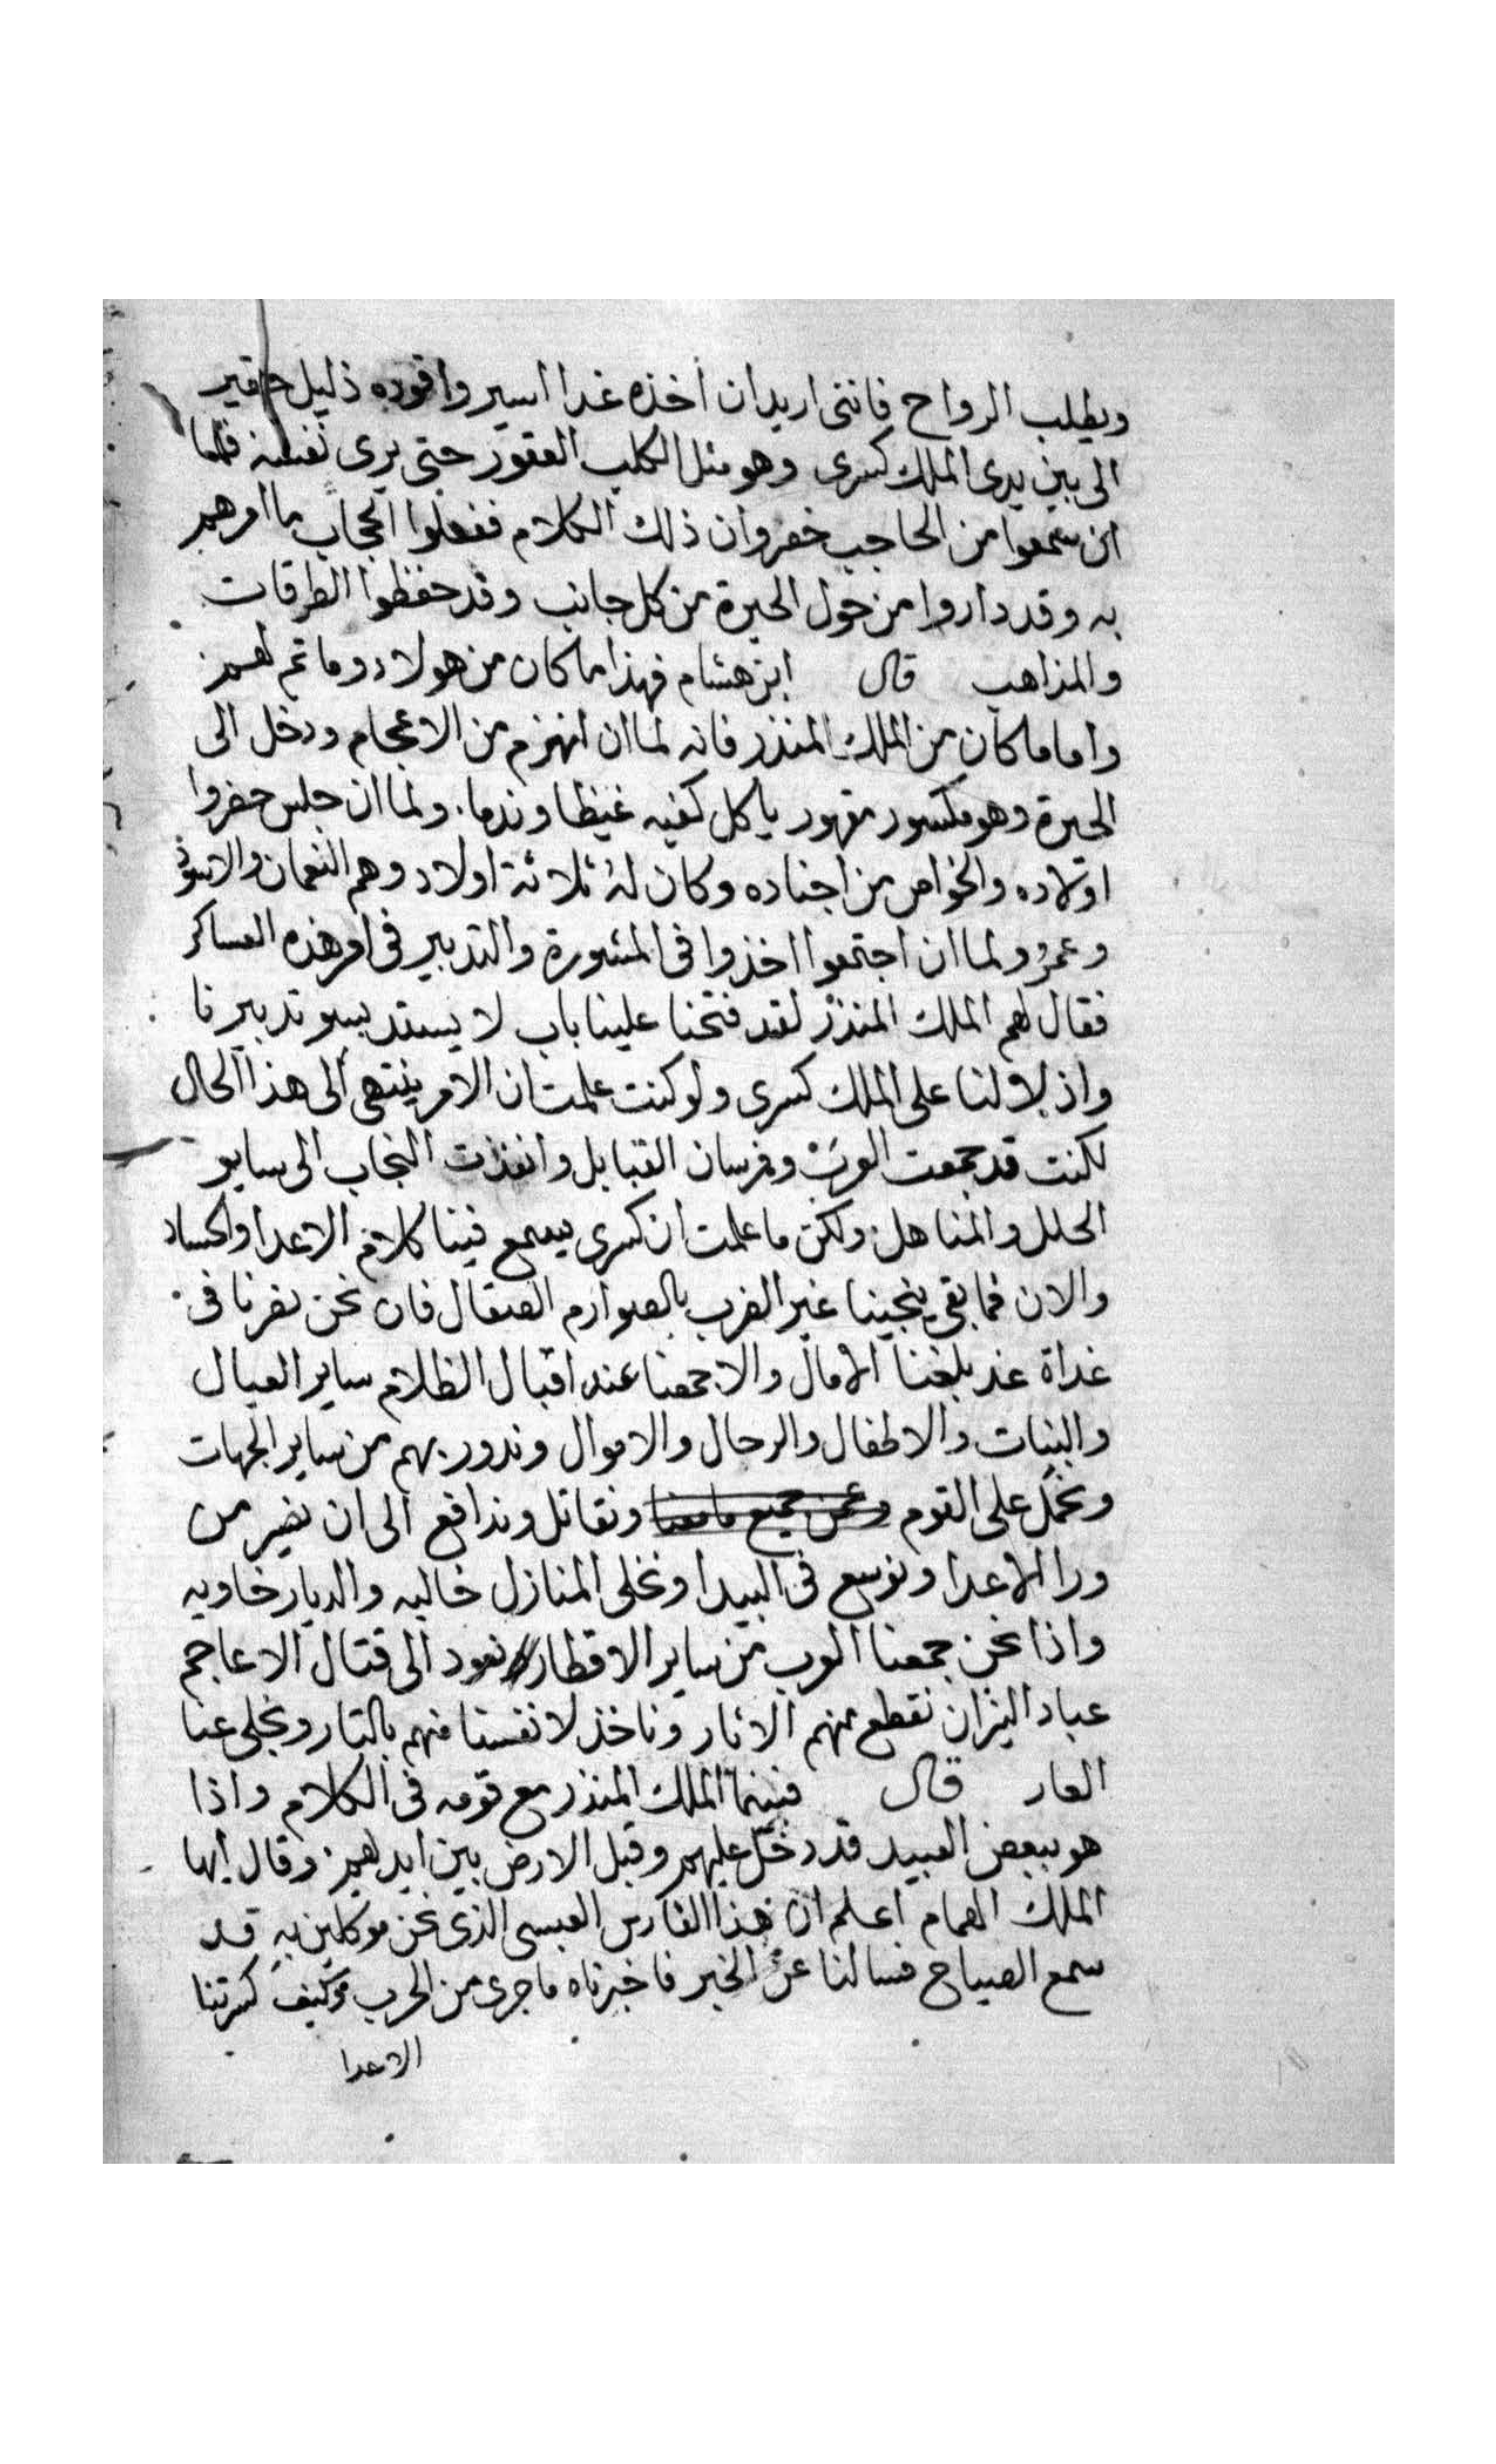 ويطلب الرواح فانني اريد ان اخذه غدا اسير واقوده ذليل حقير
الى بين يدى الملك كسرى وهو مثل الكلب العقور حتى يرى نفسه فلما
ان سمعوا من الحاجب خفروان ذلك الكلام ففعلوا الحجاب ما امرهم
به وقد داروا من حول الحيرة من كل جانب وقد حفظوا الطرقات
والمذاهب قال ابن هشام فهذا ما كان من هولاء وما تم لهم
واما ما كان من الملك المنذر فانه لما ان انهزم من الاعجام ودخل الى
الحيرة وهو مكسور مقهور ياكل كفيه غيظا وندما. ولما ان جلس حضروا
اولاده والخواص من اجناده وكان له ثلاثة اولاد وهم النعمان والاسود
وعمرُ ولما ان اجتمعوا اخذوا فى المشورة والتدبير فى امر هذه العساكر
فقال لهم الملك المنذر لقد فتحنا علينا باب لا يستد بسو تدبيرنا
واذلالنا على الملك كسرى ولو كنت علمت ان الامر ينتهى الى هذا الحال
لكنت قد جمعت العرب وفرسان القبايل وانفذت النجاب الى ساير
الحلل والمناهل ولكن ما علمت ان كسرى يسمع فينا كلام الاعدا والحساد
والان فما بقى ينجينا غير الضرب بالصوارم الصقال فان نحن نصرنا فى
غداة غد بلغنا الامال والا جمعنا عند اقبال الظلام ساير العيال
والبنات والاطفال والرجال والاموال وندور بهم من ساير الجهات
ونحمل على القوم ونحن جميع ما معنا ونقاتل وندافع الى ان نصير من
ورا الاعدا ونوسع فى البيدا ونخلى المنازل خاليه والديار خاويه
واذا نحن جمعنا العرب من ساير الاقطار نعود الى قتال الاعاجم
عباد النيران نقطع منهم الاثار وناخذ لانفسنا منهم بالتار ونجلى عنا
العار قال فبينما الملك المنذر مع قومه فى الكلام واذا
هو ببعض العبيد قد دخل عليهم وقبل الارض بين ايديهم وقال ايها
الملك الهمام اعلم ان هذا الفارس العبسى الذى نحن موكلين به قد
سمع الصياح فسالنا عن الخبر فاخبرناه ما جرى من الحرب وكيف كسرتنا
الاعدا